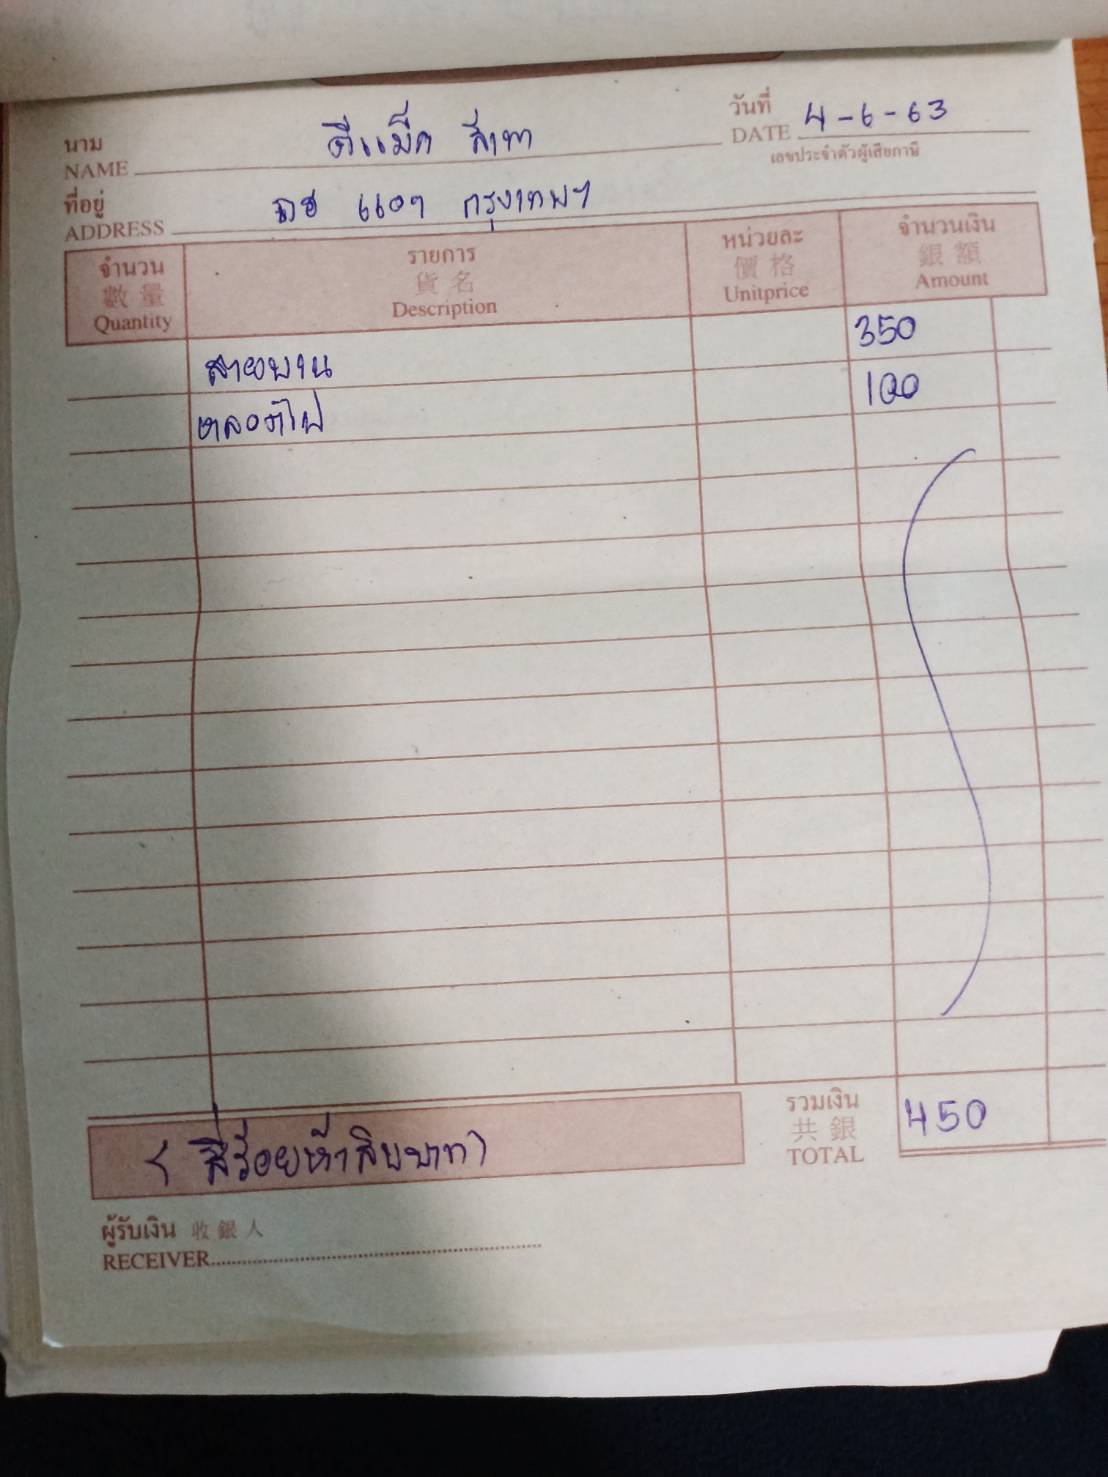 นาม
NAME ดีแม็ค
วันที่
DATE 4-6-63
เลขประจำตัวผู้เสียภาษี
ที่อยู่
ADDRESS กรุงเทพฯ
จำนวน
數量
Quantity
รายการ
貨名
Description
หน่วยละ
價格
Unitprice
จำนวนเงิน
銀額
Amount
สายพาน 350
หลอดไฟ 100
(สี่ร้อยห้าสิบบาท)
รวมเงิน
共銀
TOTAL 450
ผู้รับเงิน 收銀人
RECEIVER